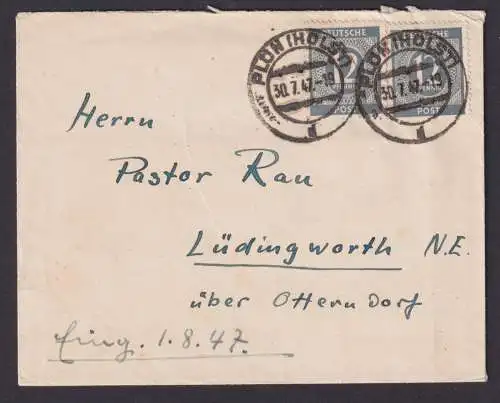 DEUTSCHE
PLÖN (HOLST) PLÖN (HOLST)
12 12
30.7.47.-19 30.7.47.-19
POST POST
d d
Herrn
Pastor Rau
Lüdingworth N.E.
über Otterndorf
Eing. 1.8.47.